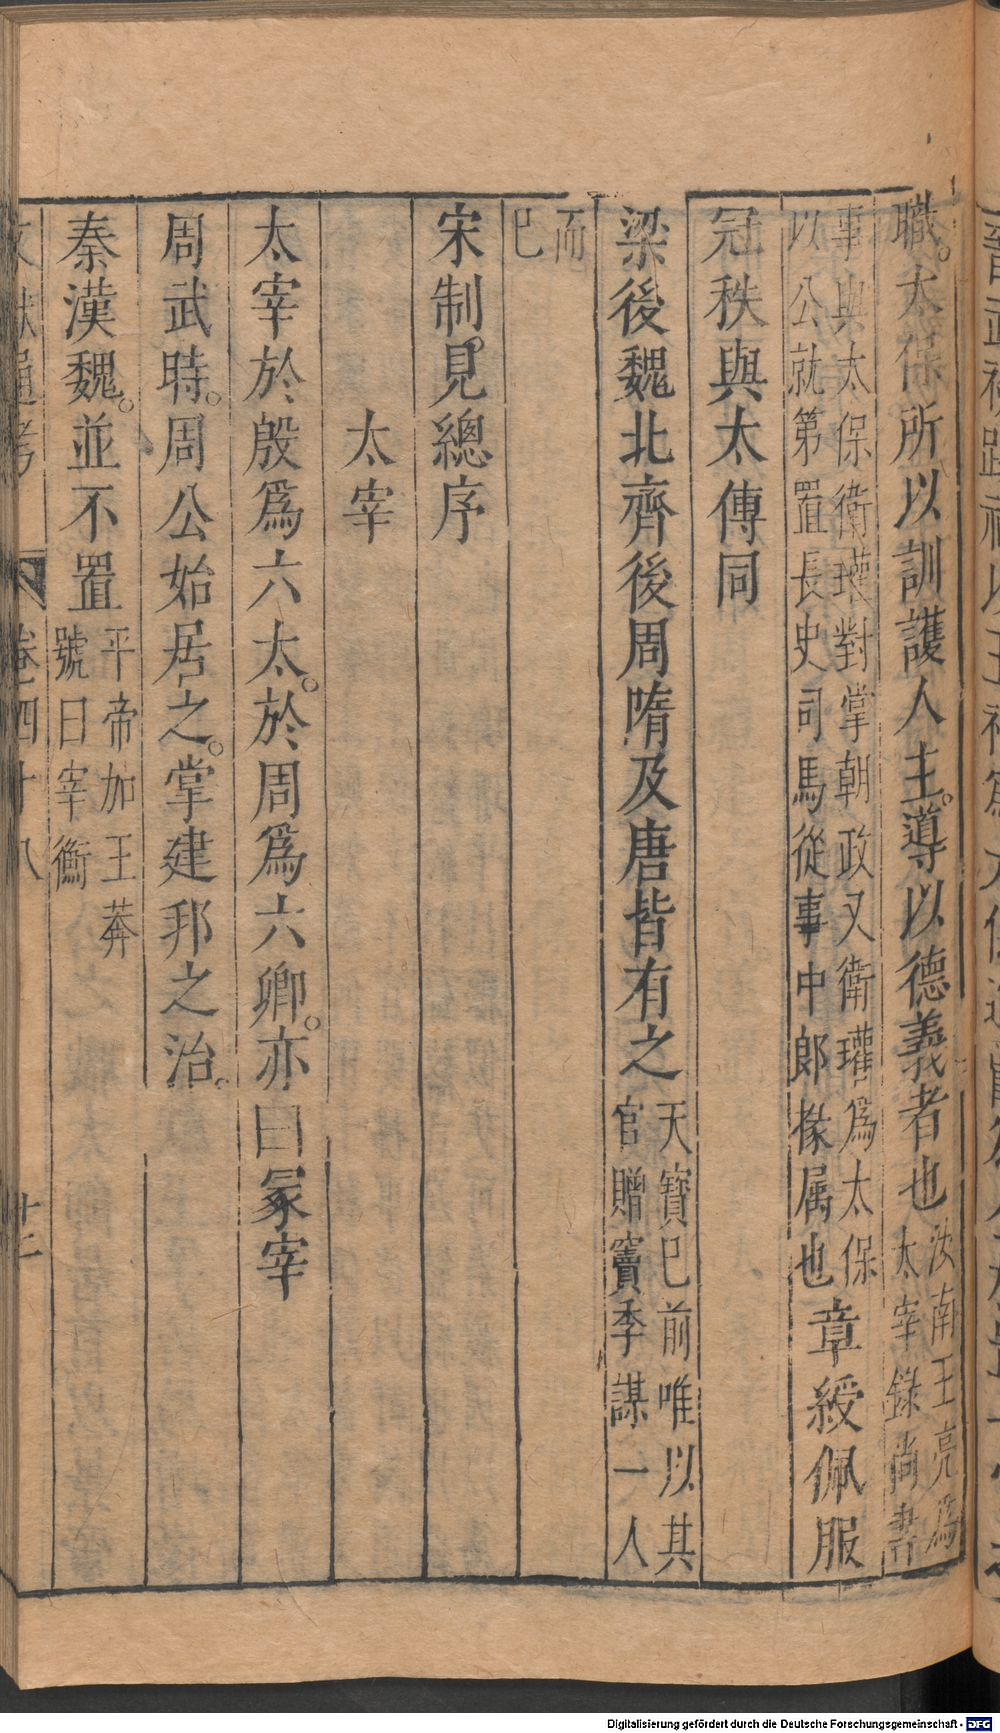 職。太保所以訓護人主。導以德義者也汝南王亮爲太宰錄尚書
事與太保衛瓘對掌朝政又衛瓘爲太保以公就第置長史司馬從事中郎掾属也章綬佩服
冠秩與太傅同
梁後魏北齊後周隋及唐皆有之天寶已前唯以其官贈竇季謀一人
而已
宋制。見總序
太宰
太宰於殷爲六太。於周爲六卿。亦曰冢宰
周武時。周公始居之。掌建邦之治。
秦漢魏。並不置平帝加王莽號曰宰衡
文獻通考 卷四十八 十二
Digitalisierung gefördert durch die Deutsche Forschungsgemeinschaft - DFG